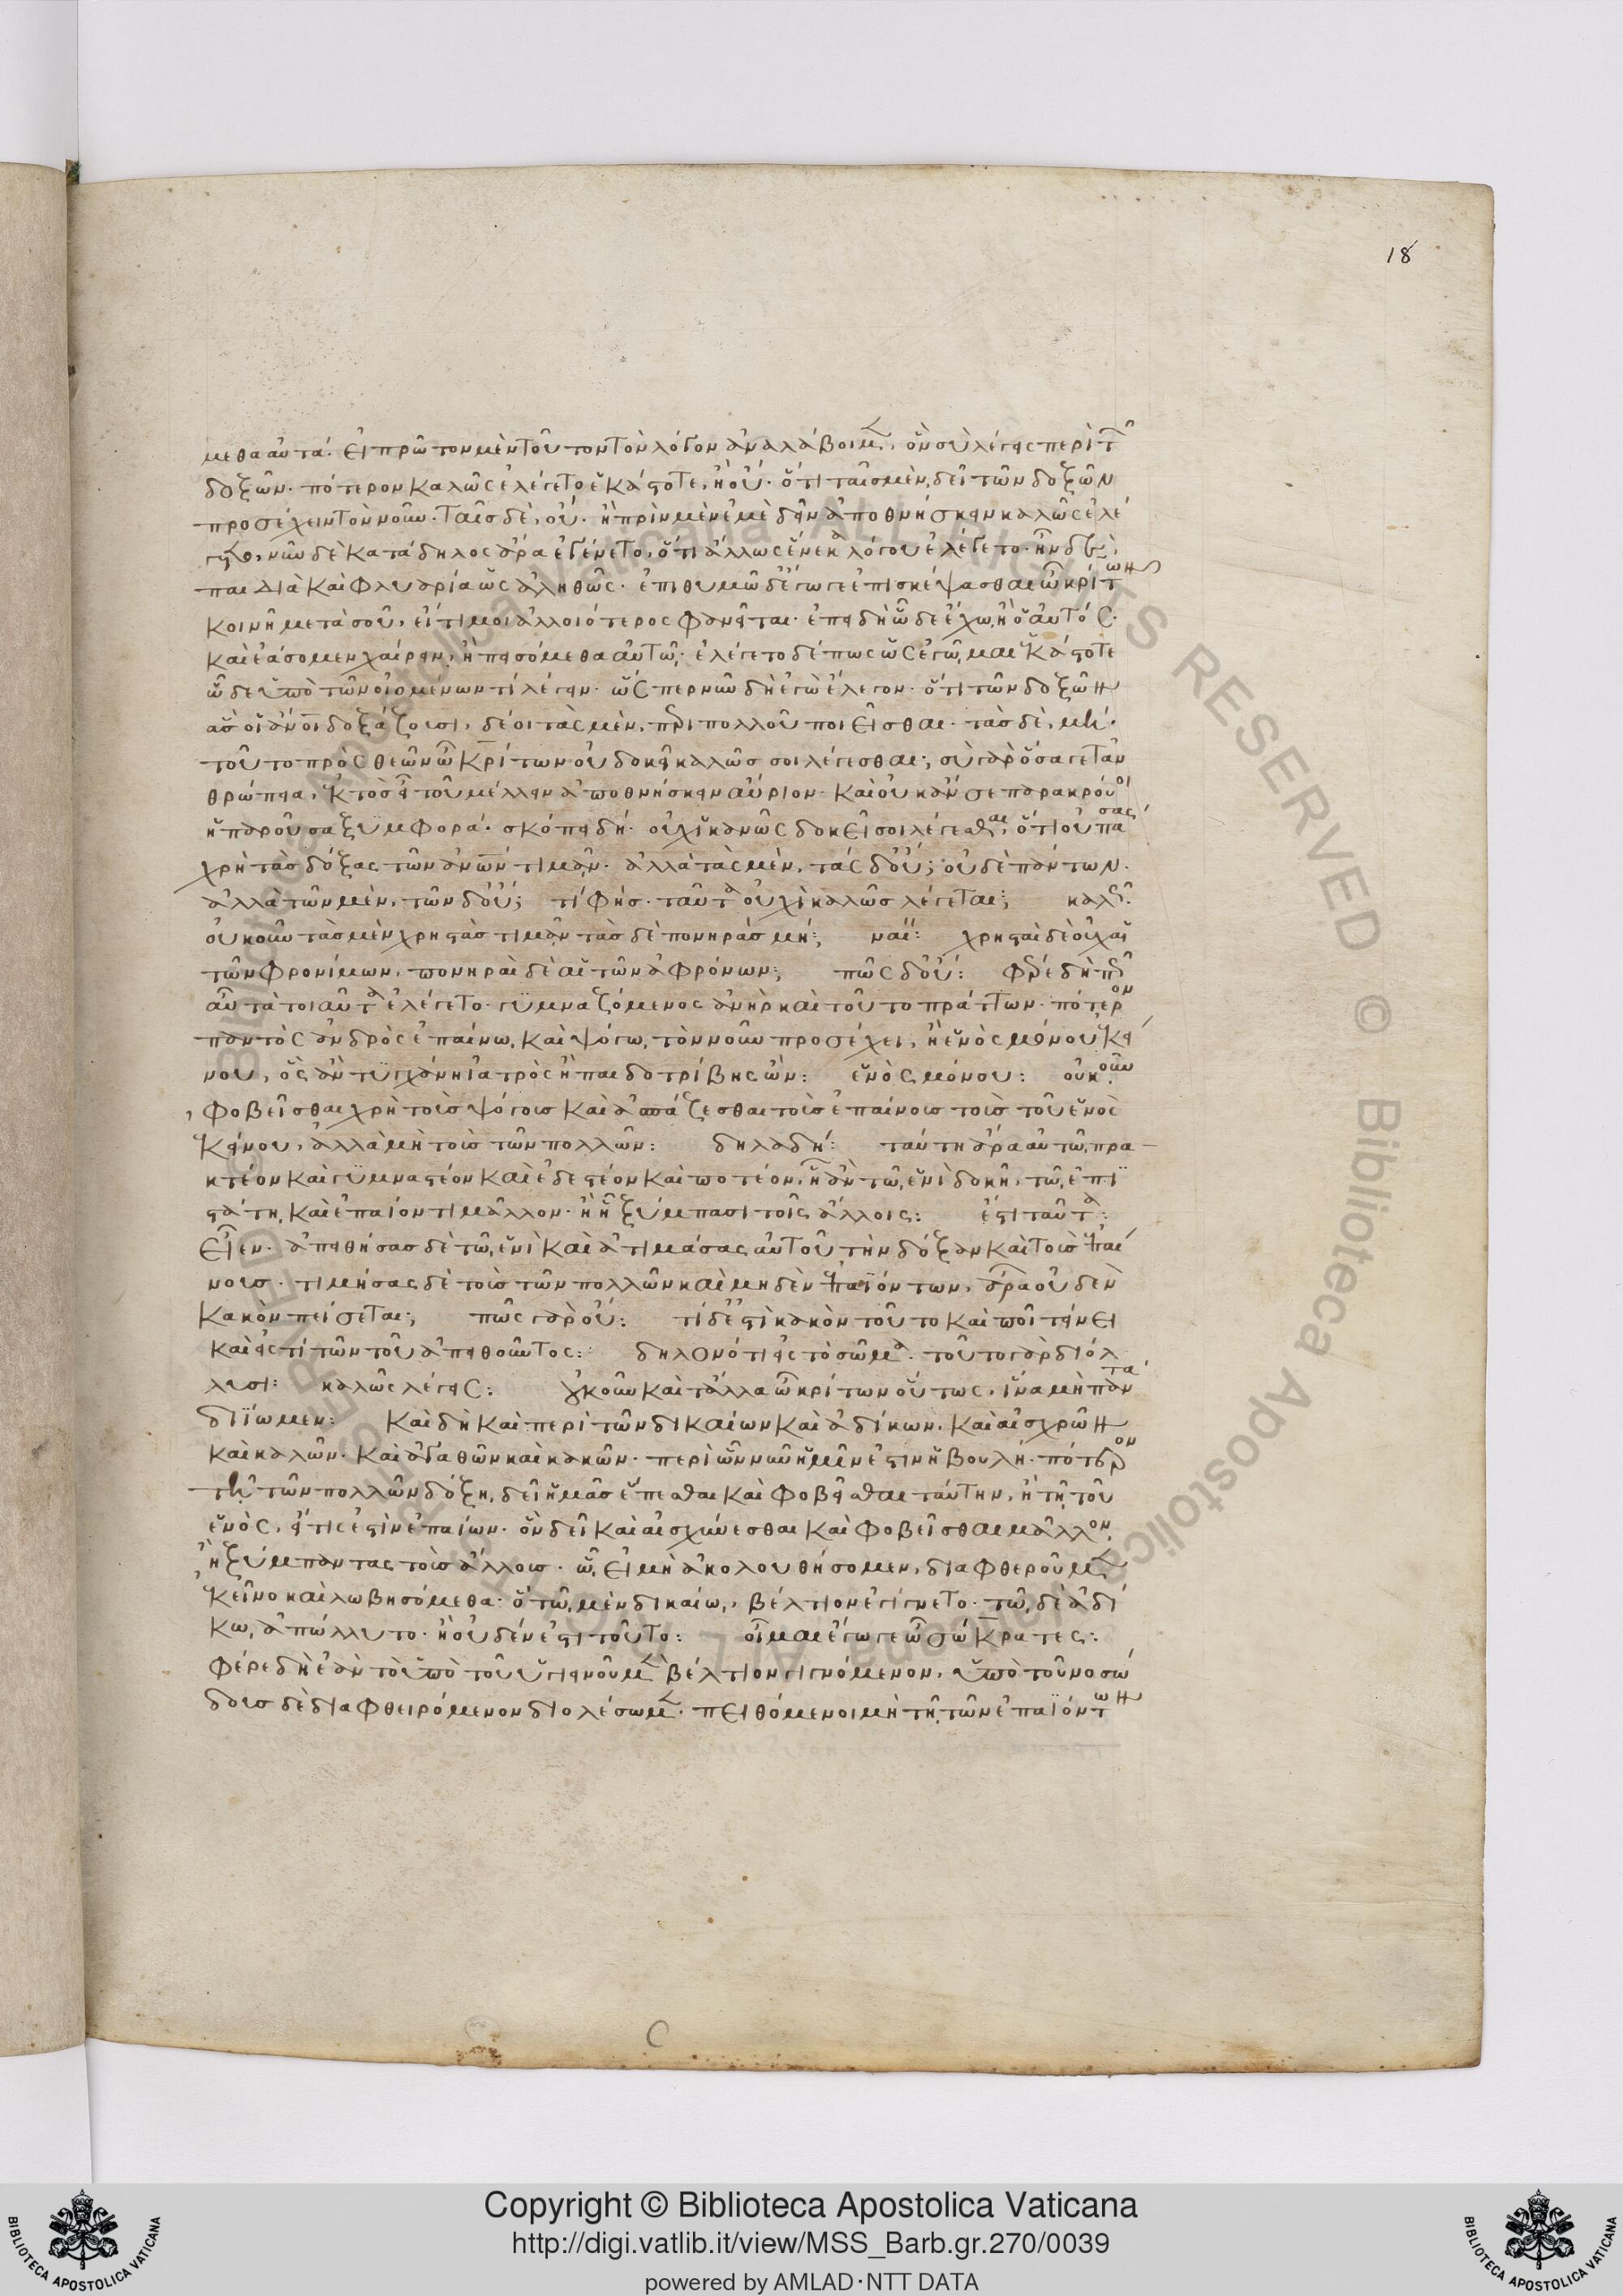 18
μεθα αὐτά· εἰ πρῶτον μὲν τοῦτον τὸν λόγον ἀναλάβοιμ, ὃν σὺ λέγεις περὶ τ
δοξῶν· πότερον καλῶς ἐλέγετο ἑκάστοτε, ἢ οὔ· ὅτι ταῖς μὲν δεῖ τῶν δοξῶν
προσέχειν τὸν νοῦν· ταῖς δὲ, οὔ· ἢ πρὶν μὲν ἐμὲ δεῖν ἀποθνήσκειν καλῶς ἐλέ
γετο, νῦν δὲ κατάδηλος ἄρα ἐγένετο, ὅτι ἄλλως ἕνεκα λόγου ἐλέγετο· ἦν δὲ
παιδιὰ καὶ φλυαρία ὡς ἀληθῶς· ἐπιθυμῶ δ' ἔγωγε ἐπισκέψασθαι ὦ κρίτων
κοινῇ μετὰ σοῦ, εἴ τι μοι ἀλλοιότερος φανεῖται· ἐπειδὴ ὧδε ἔχω, ἢ ὁ αὐτός·
καὶ ἐάσομεν χαίρειν, ἢ πεισόμεθα αὐτῷ· ἐλέγετο δέ πως ὡς ἐγῷμαι ἑκάστοτε
ὧδε ὑπὸ τῶν οἰομένων τὶ λέγειν· ὥσπερ νῦν δὴ ἐγὼ ἔλεγον· ὅτι τῶν δοξῶν
ἃς οἱ ἄνοι δοξάζουσι, δέοι τὰς μὲν, περὶ πολλοῦ ποιεῖσθαι· τὰς δὲ, μή·
τοῦτο πρὸς θεῶν ὦ κρίτων οὐ δοκεῖ καλῶς σοι λέγεσθαι; σὺ γὰρ ὅσα γε τἀν
θρώπεια, ἐκτὸς εἶ τοῦ μέλλειν ἀποθνήσκειν αὔριον· καὶ οὐκ ἄν σε παρακρούοι
ἡ παροῦσα ξυμφορά· σκόπει δή· οὐχ ἱκανῶς δοκεῖ σοι λέγεσθαι, ὅτι οὐ πάσας
χρὴ τὰς δόξας τῶν ἀνων τιμᾶν· ἀλλὰ τὰς μὲν, τὰς δ' οὔ; οὐδὲ πάντων·
ἀλλὰ τῶν μὲν, τῶν δ' οὔ; τί φής· ταῦτα οὐχὶ καλῶς λέγεται; καλῶς:
οὐκοῦν τὰς μὲν χρηστὰς τιμᾶν τὰς δὲ πονηρὰς μή; ναί: χρησταὶ δὲ οὐχ αἱ
τῶν φρονίμων, πονηραὶ δὲ αἱ τῶν ἀφρόνων; πῶς δ' οὔ: φέρε δὴ πῶς
αὖ τὰ τοιαῦτα ἐλέγετο· γυμναζόμενος ἀνὴρ καὶ τοῦτο πράττων· πότερον
παντὸς ἀνδρὸς ἐπαίνω, καὶ ψόγω, τὸν νοῦν προσέχει, ἢ ἑνὸς μόνου ἐκεί
νου, ὃς ἂν τυγχάνη ἰατρὸς ἢ παιδοτρίβης ὤν: ἑνὸς μόνου: οὐκοῦν
φοβεῖσθαι χρὴ τοὺς ψόγους καὶ ἀσπάζεσθαι τοὺς ἐπαίνους τοὺς τοῦ ἑνὸς
ἐκείνου, ἀλλὰ μὴ τοὺς τῶν πολλῶν: δηλαδή: ταύτη ἄρα αὐτῷ πρα
κτέον καὶ γυμναστέον καὶ ἐδεστέον καὶ ποτέον, ᾗ ἂν τῷ ἑνὶ δοκῇ, τῷ ἐπι
στάτη, καὶ ἐπαίοντι μᾶλλον· ἢ ᾗ ξύμπασι τοῖς ἄλλοις: ἔστι ταῦτα:
εἶεν· ἀπειθήσας δὲ τῷ ἑνὶ καὶ ἀτιμάσας αὐτοῦ τὴν δόξαν καὶ τοὺς ἐπαί
νους· τιμήσας δὲ τοὺς τῶν πολλῶν καὶ μηδὲν ἐπαϊόντων, ἆρα οὐδὲν
κακὸν πείσεται; πῶς γὰρ οὔ: τί δ' ἐστὶ κακὸν τοῦτο καὶ ποῖ τείνει
καὶ εἰς τί τῶν τοῦ ἀπειθοῦντος: δηλονότι εἰς τὸ σῶμα· τοῦτο γὰρ διόλ
λυσι: καλῶς λέγεις: οὐκοῦν καὶ τἄλλα ὦ κρίτων οὕτως, ἵνα μὴ πάντα
διΐωμεν: καὶ δὴ καὶ περὶ τῶν δικαίων καὶ ἀδίκων, καὶ αἰσχρῶν
καὶ καλῶν· καὶ ἀγαθῶν καὶ κακῶν· περὶ ὧν νῦν ἡμῖν ἐστιν ἡ βουλή· πότερον
τῇ τῶν πολλῶν δόξη, δεῖ ἡμᾶς ἕπεσθαι καὶ φοβεῖσθαι ταύτην, ἢ τῇ τοῦ
ἑνός, εἴ τις ἐστὶν ἐπαίων· ὃν δεῖ καὶ αἰσχύνεσθαι καὶ φοβεῖσθαι μᾶλλον
ἢ ξύμπαντας τοὺς ἄλλους· ᾧ, εἰ μὴ ἀκολουθήσομεν, διαφθεροῦμεν
ἐκεῖνο καὶ λωβησόμεθα· ὃ τῷ μὲν δικαίῳ, βέλτιον ἐγίγνετο· τῷ δὲ ἀδί
κω, ἀπώλλυτο· ἢ οὐδέν ἐστι τοῦτο: οἶμαι ἔγωγε ὦ σώκρατες:
φέρε δὴ ἐὰν τὸ ὑπὸ τοῦ ὑγιεινοῦ μὲν βέλτιον γιγνόμενον, ὑπὸ τοῦ νοσώ
δους δὲ διαφθειρόμενον διολέσωμεν· πειθόμενοι μὴ τῇ τῶν ἐπαϊόντων
Copyright © Biblioteca Apostolica Vaticana
http://digi.vatlib.it/view/MSS_Barb.gr.270/0039
powered by AMLAD·NTT DATA
BIBLIOTECA APOSTOLICA VATICANA
BIBLIOTECA APOSTOLICA VATICANA